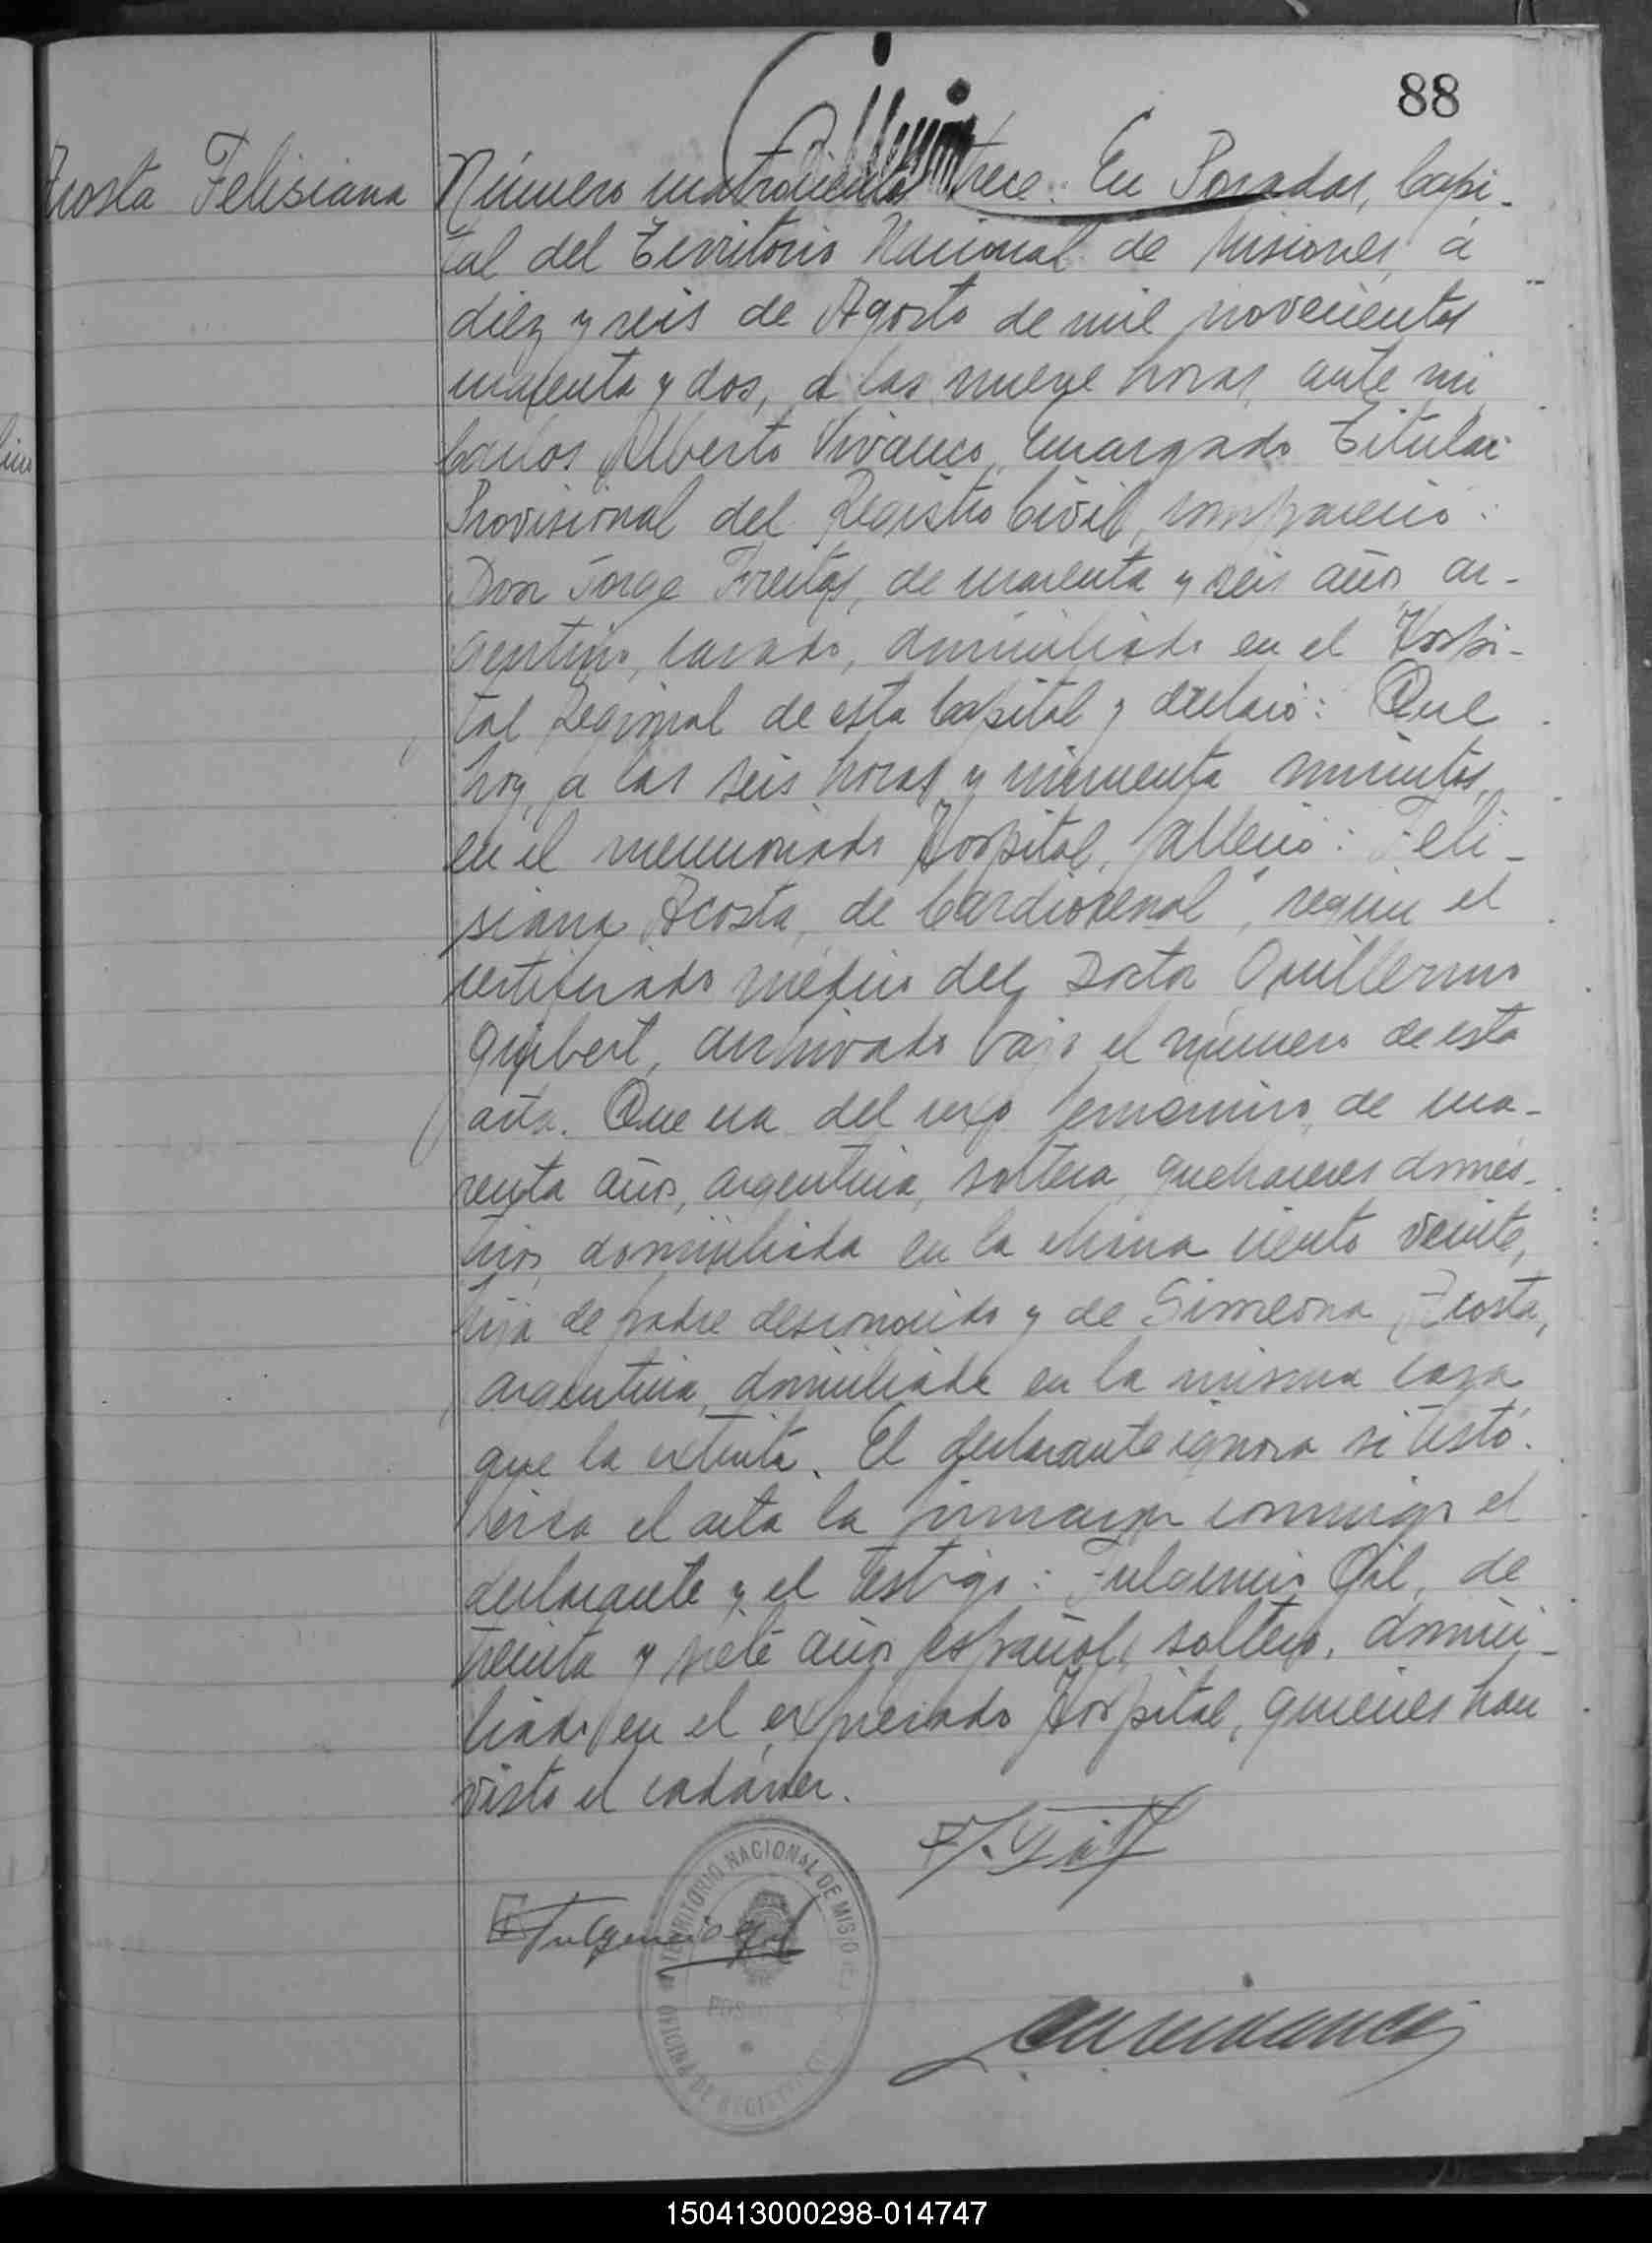 88
Acosta Felisiana
Número cuatrocientos trece: En Posadas, Capi-
tal del Territorio Nacional de Misiones, á
diez y seis de Agosto de mil novecientos
cuarenta y dos, a las nueve horas, ante mi
Carlos Alberto Vivanco, Encargado Titular
Provisional del Registro Civil, compareció:
Don Jorge Freitas, de cuarenta y seis años, ar-
gentino, casado, domiciliado en el Hospi-
tal Regional de esta Capital y declaró: Que
hoy, a las seis horas y cincuenta minutos,
en el mencionado Hospital, falleció: Feli-
siana Acosta, de Cardiorenal", según el
certificado médico del Doctor Guillermo
archivado bajo el número de esta
acta. Que era del sexo femenino, de cua-
renta años, argentina, soltera, quehaceres domés-
ticos, domiciliada en la chacra ciento veinte,
hija de padre desconocido y de Simeona Acosta,
argentina, domiciliada en la misma casa
que la extinta. El declarante ignora si testó.
Leída el acta la firmaron conmigo el
declarante y el testigo: Fulgencio Gil, de
treinta y siete años, español, soltero, domici-
liado en el expresado Hospital, quienes han
visto el cadáver.
Fulgencio Gil
TERRITORIO NACIONAL DE MISIONES
OFICINA DE REGISTRO
150413000298-014747